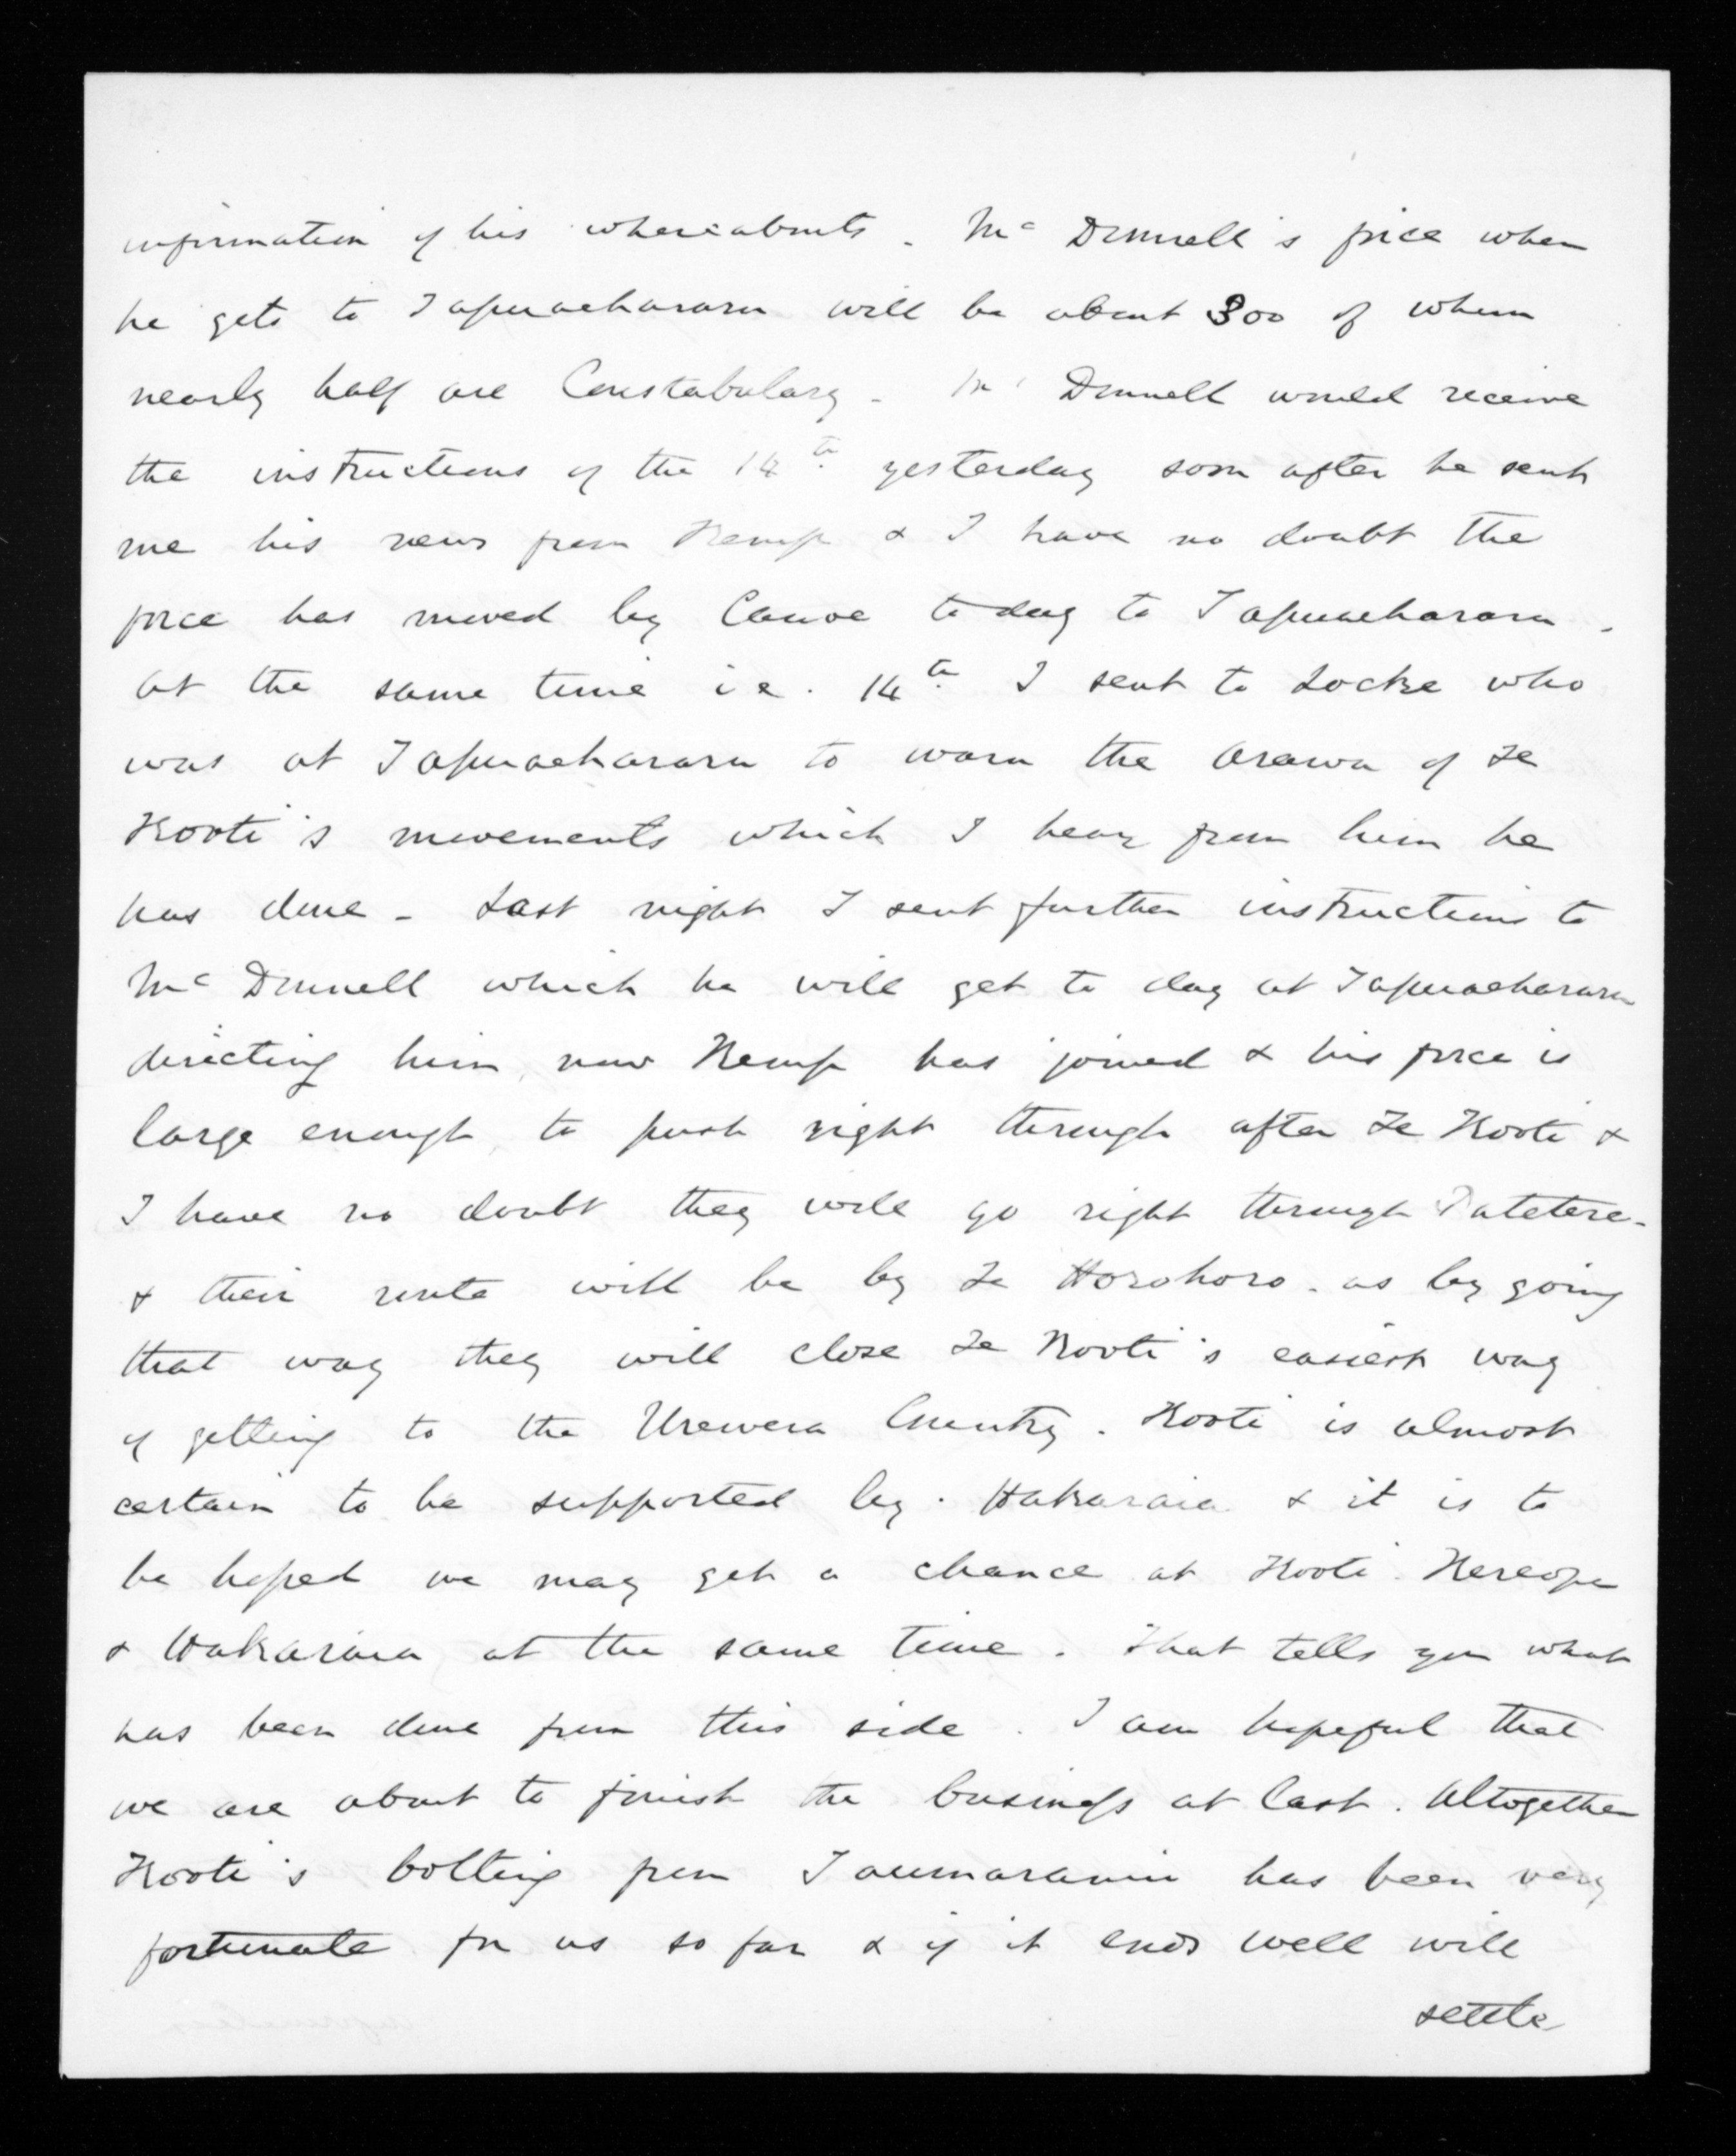 information of his whereabouts. McDonnell's force when
he gets to Tapuaeharuru will be about 300 of whom
nearly half are Constabulary - McDonnell would receive
the instructions of the 14th yesterday soon after he sent
me his news from Kemp & I have no doubt the
force has moved by Canoe today to Tapuaeharuru.
At the same time i.e. 14th I sent to Locke who
was at Tapuaeharuru to warn the Arawa of Te
Kooti's movements which I hear from him he
has done - Last night I sent further instructions to
McDonnell which he will get to day at Tapuaeharuru
directing him, now Kemp has joined & his force is
large enough, to push right through after Te Kooti &
I have no doubt they will go right through Patetere -
& their route will be by Te Horohoro - as by going
that way they will close Te Kooti's easiest way
of getting to the Urewera Country. Kooti is almost
certain to be supported by Hakaraia & it is to
be hoped we may get a chance at Kooti Kereopa
& Hakaraia at the same time. That tells you what
has been done from this side. I am hopeful that
we are about to finish the business at last. Altogether
Kooti's bolting from Taumarunui has been very
fortunate for us so far & if it ends well will
settle